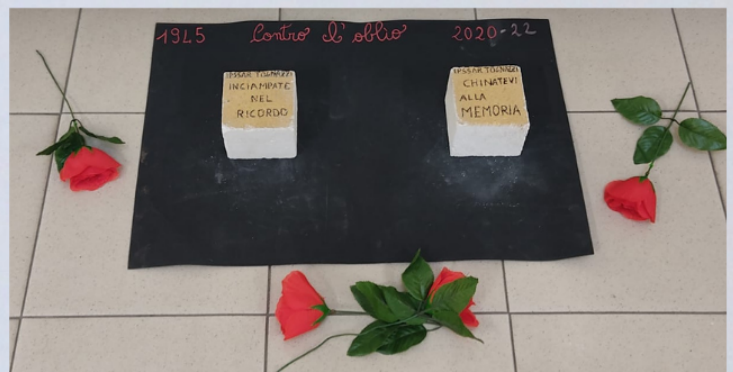 1945 Contro l'oblio 2020-22
IPSSAR TOGNAZZI
INCIAMPATE
NEL
RICORDO
IPSSAR TOGNAZZI
CHINATEVI
ALLA
MEMORIA